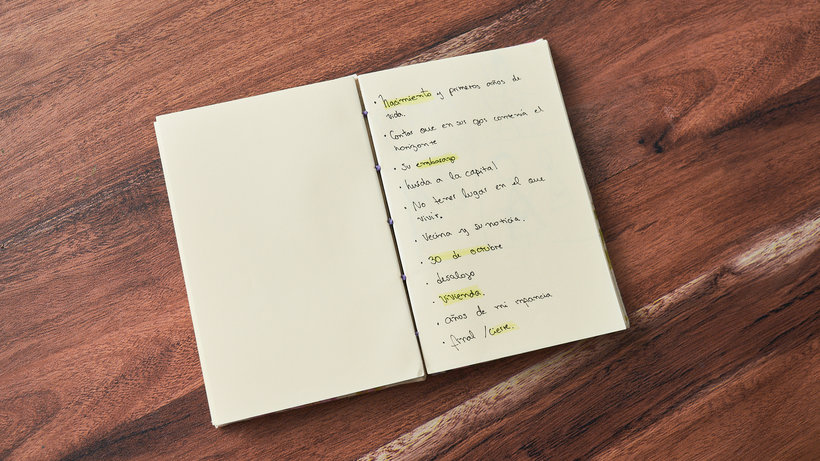 • Nacimiento y primeros años de
vida.
• Contar que en sus ojos contenía el
horizonte
• Su embarazo
• huida a la capital
• No tener lugar en el que
vivir.
• Vecina y su noticia.
• 30 de octubre
• desalojo
• Vivienda.
• años de mi infancia
• final / cierre.